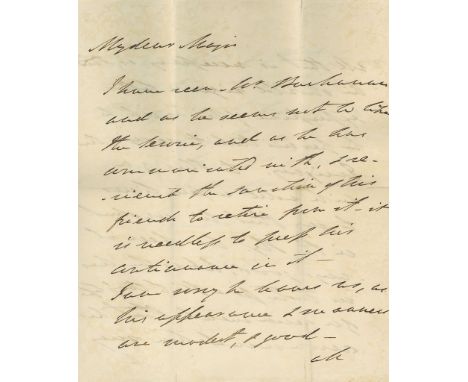 My dear Major
I have seen Mr. Buchanan
and as he seems not to like
the service, and as he has
communicated with, & re-
ceived the sanction of his
friends to retire from it - it
is needless to press his
continuance in it -
I am sorry he leaves us, as
his appearance & manners
are modest, & good -